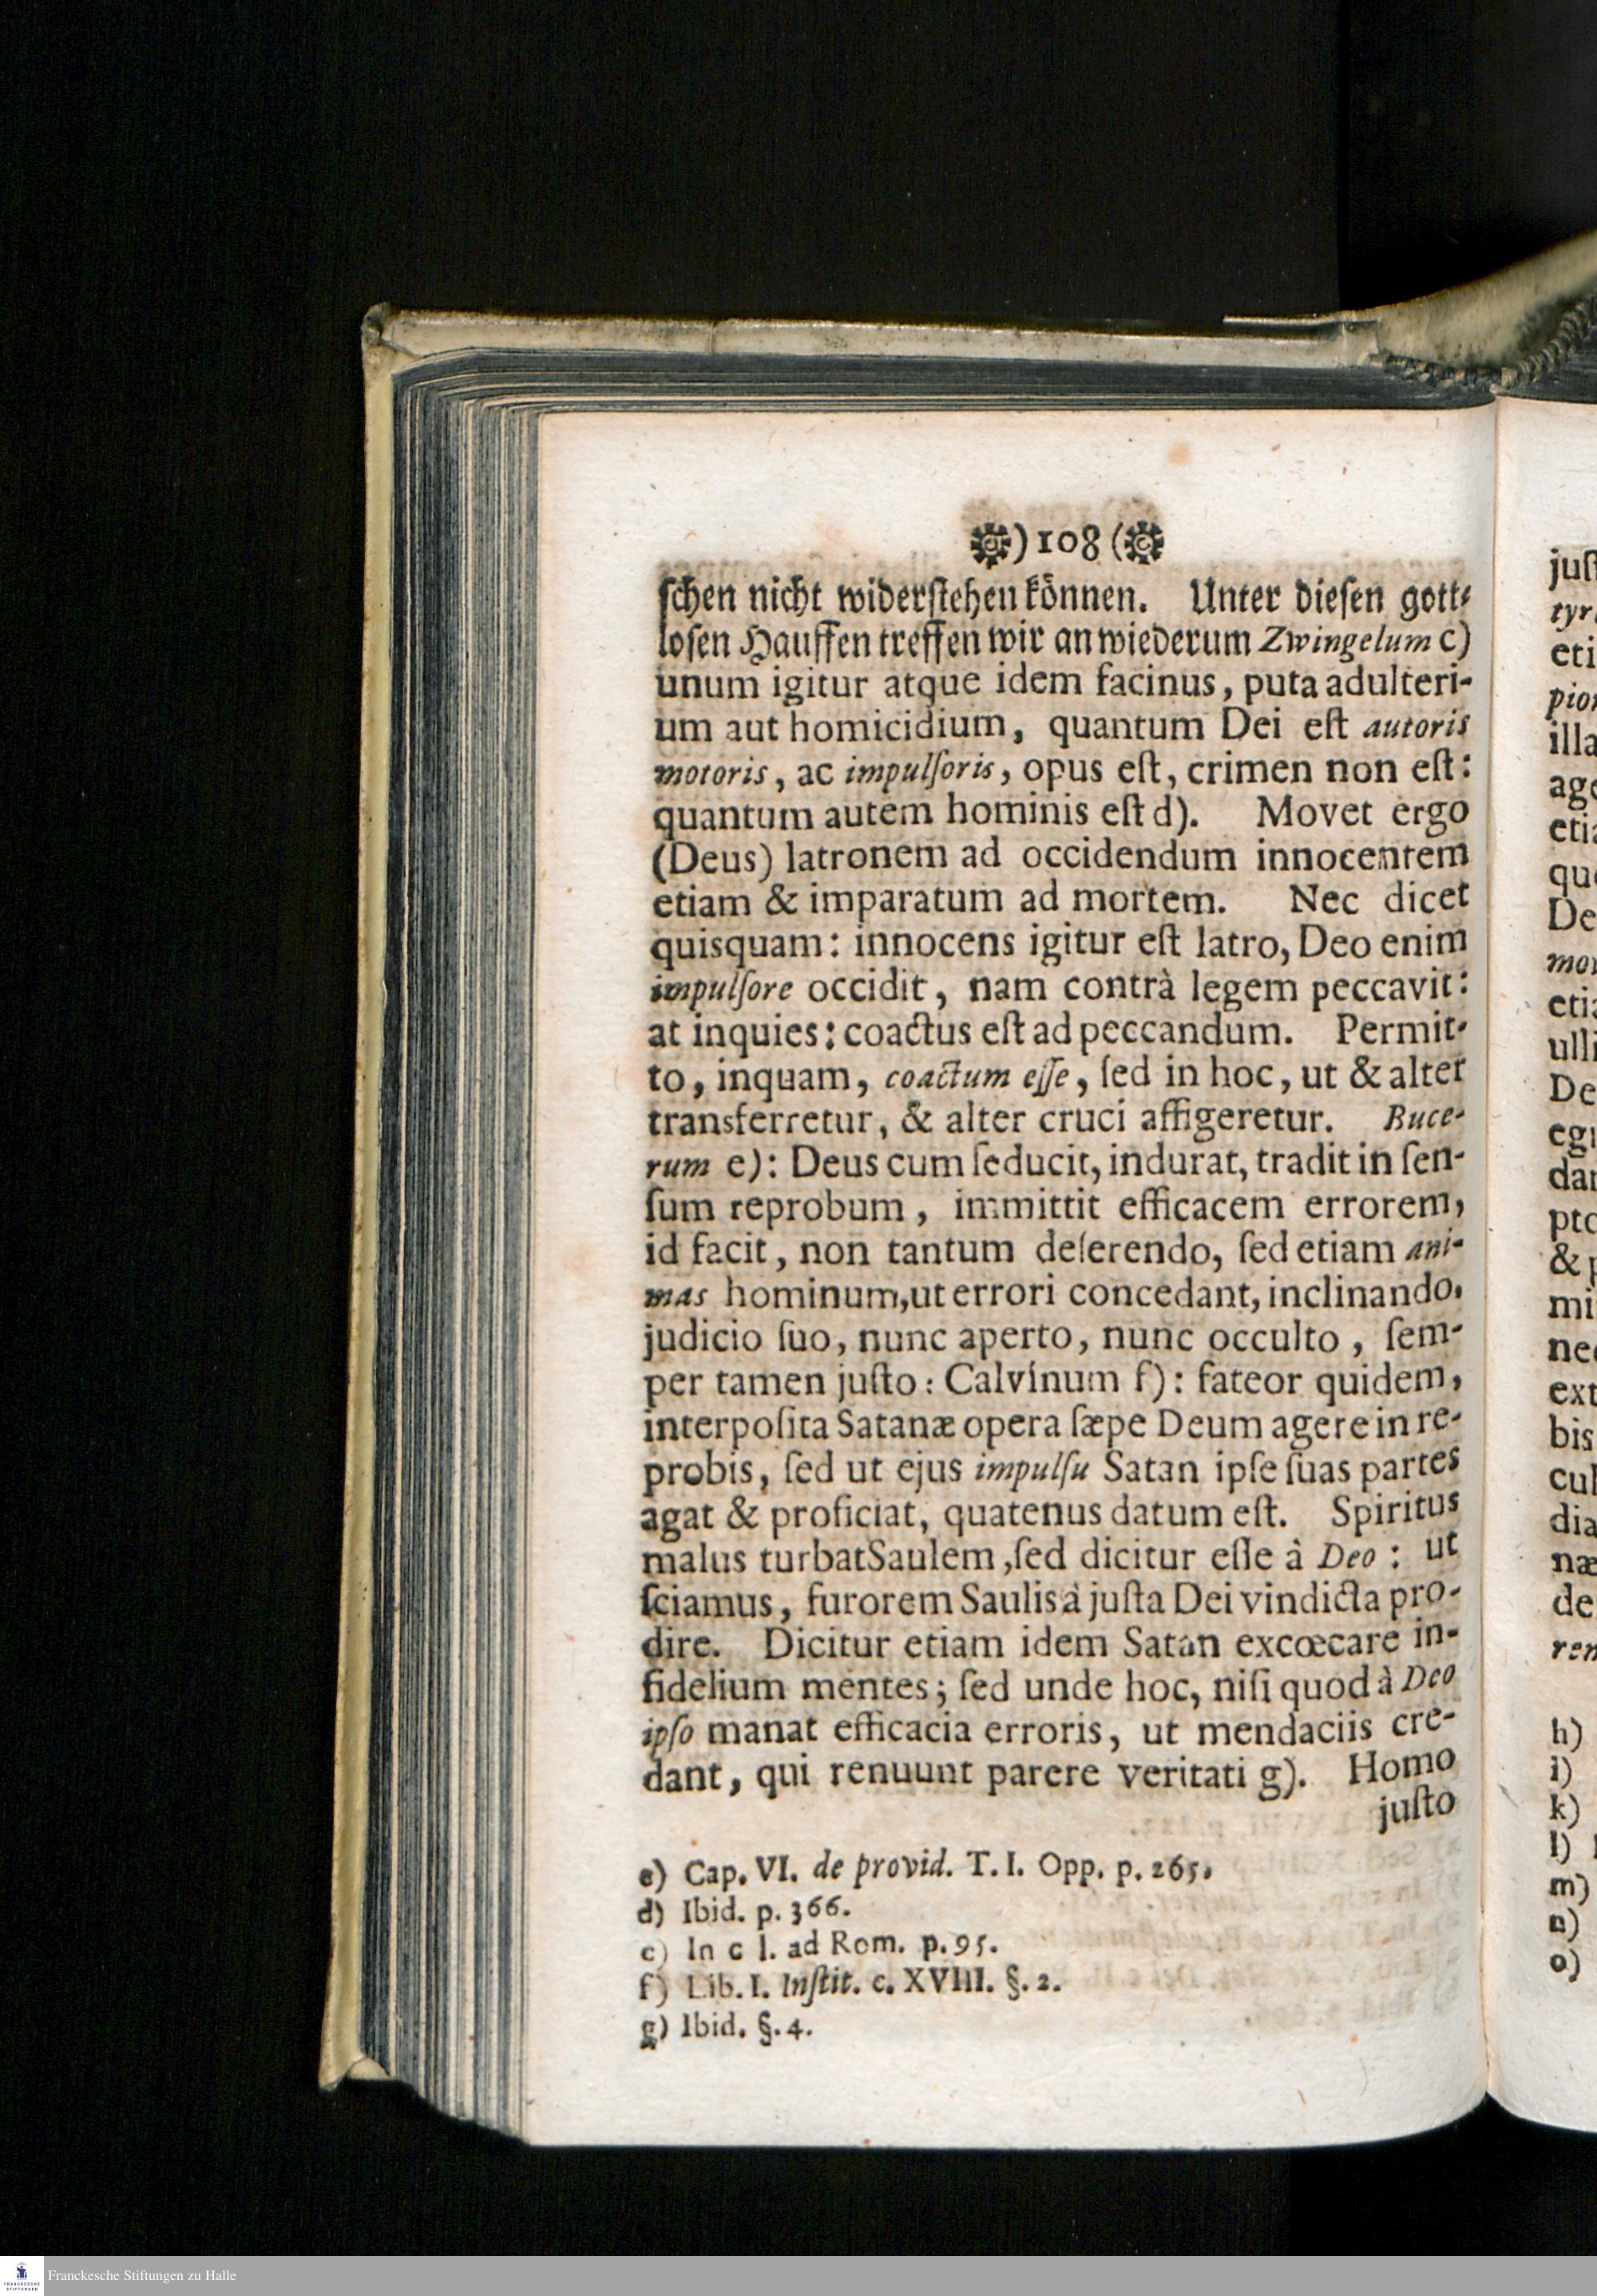 )108(
ſchen nicht widerſtehen können. Unter dieſen gott-
loſen Hauffen treffen wir an wiederum Zwingelum c)
unum igitur atque idem facinus, puta adulteri-
um aut homicidium, quantum Dei eſt autoris
motoris, ac impulſoris, opus eſt, crimen non eſt:
quantum autem hominis eſt d). Movet ergo
(Deus) latronem ad occidendum innocentem
etiam & imparatum ad mortem. Nec dicet
quisquam: innocens igitur eſt latro, Deo enim
impulſore occidit, nam contrà legem peccavit:
at inquies: coactus eſt ad peccandum. Permit-
to, inquam, coactum eſſe, ſed in hoc, ut & alter
transferretur, & alter cruci affigeretur. Buce-
rum e): Deus cum ſeducit, indurat, tradit in ſen-
ſum reprobum, immittit efficacem errorem,
id facit, non tantum deſerendo, ſed etiam ani-
mas hominum, ut errori concedant, inclinando,
judicio ſuo, nunc aperto, nunc occulto, ſem-
per tamen juſto: Calvinum f): fateor quidem,
interpoſita Satanæ opera ſæpe Deum agere in re-
probis, ſed ut ejus impulſu Satan ipſe ſuas partes
agat & proficiat, quatenus datum eſt. Spiritus
malus turbat Saulem, ſed dicitur eſſe à Deo: ut
ſciamus, furorem Saulis à juſta Dei vindicta pro-
dire. Dicitur etiam idem Satan excœcare in-
fidelium mentes; ſed unde hoc, niſi quod à Deo
ipſo manat efficacia erroris, ut mendaciis cre-
dant, qui renuunt parere veritati g). Homo
juſto
c) Cap. VI. de provid. T. I. Opp. p. 265.
d) Ibid. p. 366.
e) In c I. ad Rom. p. 95.
f) Lib. I. Inſtit. c. XVIII. §. 2.
g) Ibid. §. 4.
juſ
tyr
eti
pio
illa
age
eti
qu
De
mo
eti
ulli
De
eg
dar
pto
&
mi
ne
ext
bis
cul
dia
næ
de
ren
h)
i)
k)
l)
m)
n)
o)
FRANCKESCHE
STIFTUNGEN
Franckesche Stiftungen zu Halle